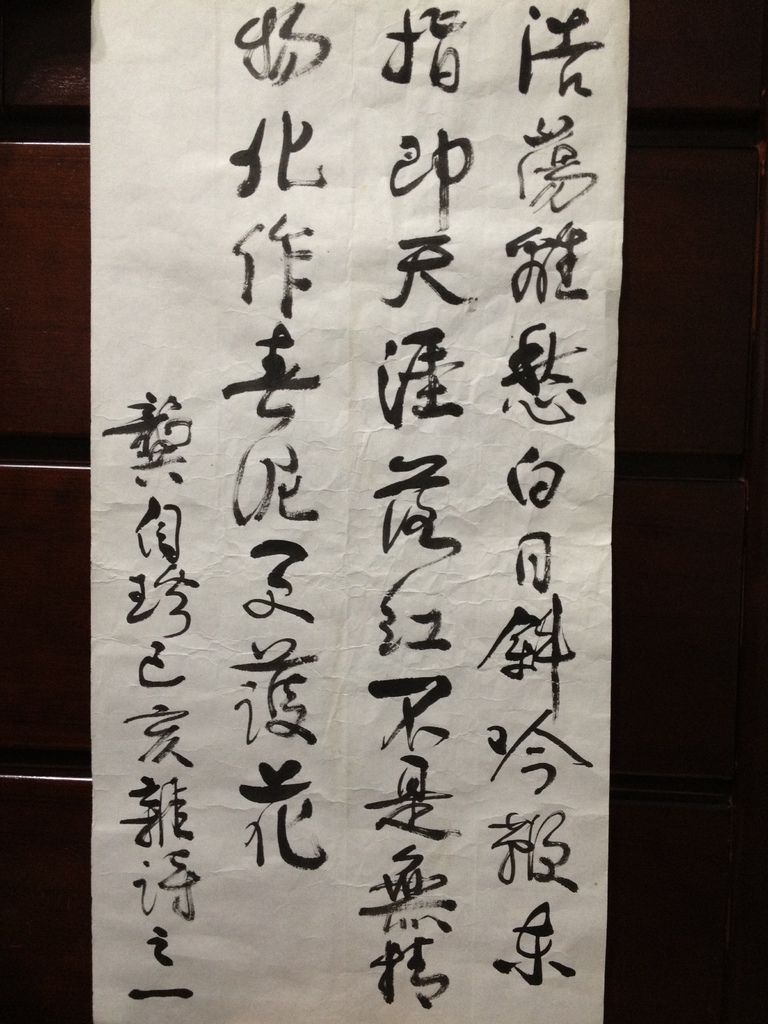 浩蕩離愁白日斜吟鞭东
指即天涯落红不是無情
物化作春泥更護花
龔自珍己亥雜詩之一